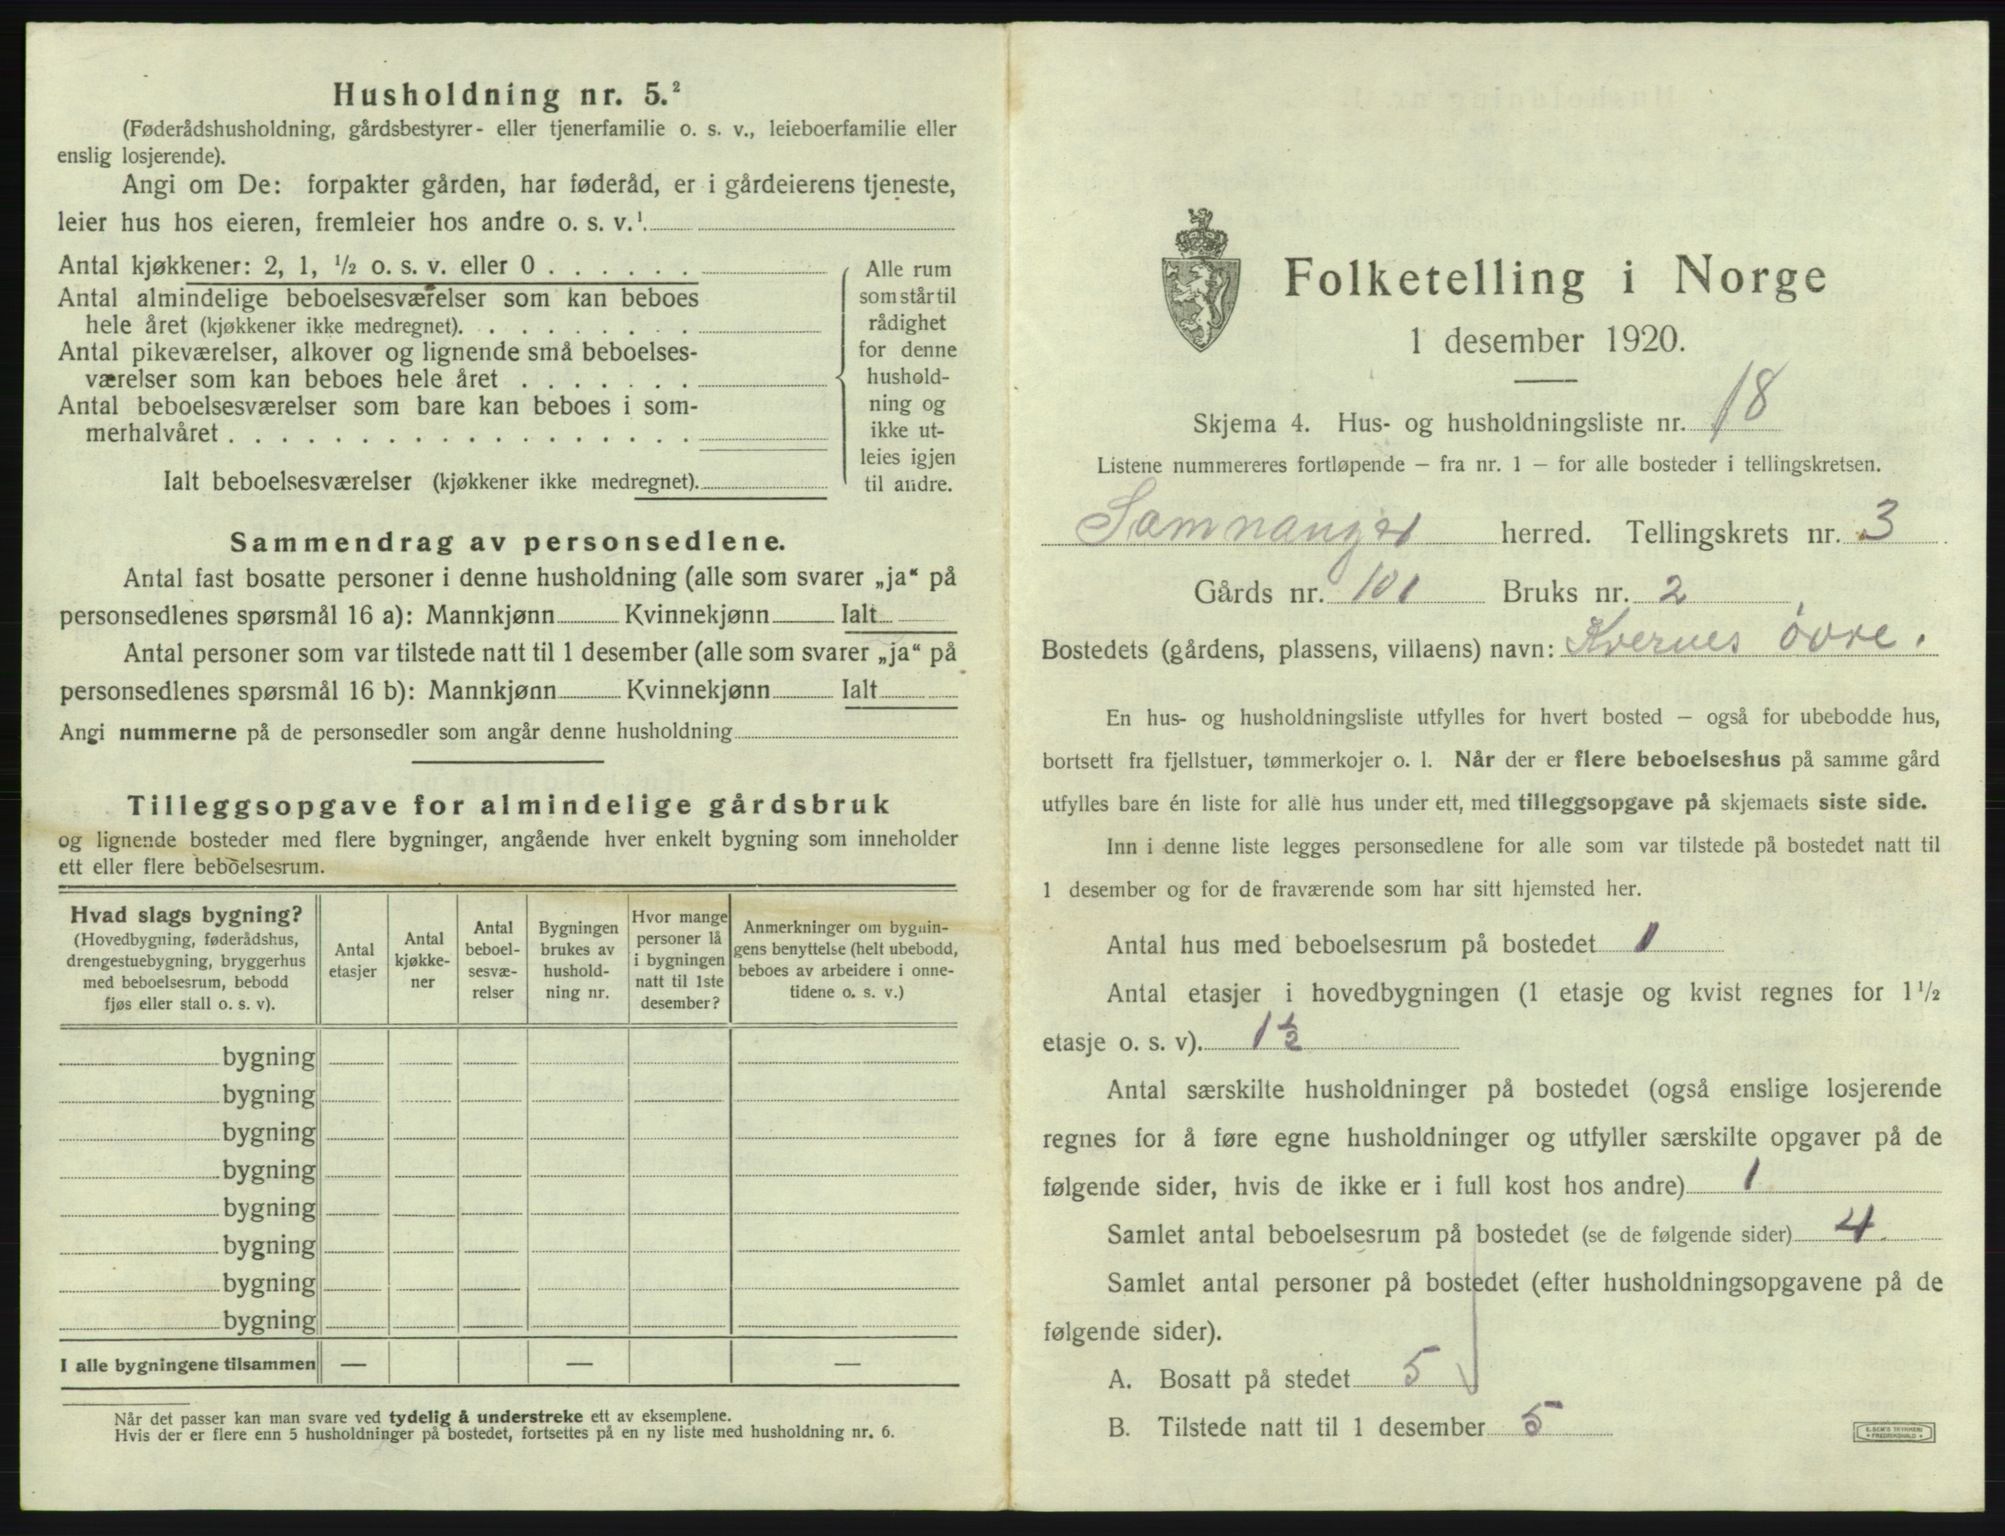 Husholdning nr. 5.²
(Føderådshusholdning, gårdsbestyrer- eller tjenerfamilie o. s. v., leieboerfamilie eller
enslig losjerende).
Angi om De: forpakter gården, har føderåd, er i gårdeierens tjeneste,
leier hus hos eieren, fremleier hos andre o. s. v.¹.
Antal kjøkkener: 2, 1, ½ o. s. v. eller 0 . . . . . .
Antal almindelige beboelsesværelser som kan beboes
hele året (kjøkkener ikke medregnet). . . . . . . . .
Antal pikeværelser, alkover og lignende små beboelses-
værelser som kan beboes hele året . . . . . . .
Antal beboelsesværelser som bare kan beboes i som-
merhalvåret . . . . . . . . . . . . . . . . . .
Ialt beboelsesværelser (kjøkkener ikke medregnet).
Alle rum
som står til
rådighet
for denne
hushold-
ning og
ikke ut-
leies igjen
til andre.
Sammendrag av personsedlene.
Antal fast bosatte personer i denne husholdning (alle som svarer „ja“ på
personsedlenes spørsmål 16 a): Mannkjønn Kvinnekjønn Ialt
Antal personer som var tilstede natt til 1 desember (alle som svarer „ja“ på
personsedlenes spørsmål 16 b): Mannkjønn Kvinnekjønn Ialt
Angi nummerne på de personsedler som angår denne husholdning
Tilleggsopgave for almindelige gårdsbruk
og lignende bosteder med flere bygninger, angående hver enkelt bygning som inneholder
ett eller flere beboelsesrum.
Hvad slags bygning?
(Hovedbygning, føderådshus,
drengestuebygning, bryggerhus
med beboelsesrum, bebodd
fjøs eller stall o. s. v).
Antal
etasjer
Antal
kjøkke-
ner
Antal
beboel-
sesvæ-
relser
Bygningen
brukes av
hushold-
ning nr.
Hvor mange
personer lå
i bygningen
natt til 1ste
desember?
Anmerkninger om bygnin-
gens benyttelse (helt ubebodd,
beboes av arbeidere i onne-
tidene o. s. v.)
bygning
bygning
bygning
bygning
bygning
bygning
bygning
bygning
I alle bygningene tilsammen — — —
Når det passer kan man svare ved tydelig å understreke ett av eksemplene.
Hvis der er flere enn 5 husholdninger på bostedet, fortsettes på en ny liste med husholdning nr. 6.
Folketelling i Norge
1 desember 1920.
Skjema 4. Hus- og husholdningsliste nr. 18
Listene nummereres fortløpende — fra nr. 1 — for alle bosteder i tellingskretsen.
Samnanger herred. Tellingskrets nr. 3
Gårds nr. 101 Bruks nr. 2
Bostedets (gårdens, plassens, villaens) navn: Kvernes øvre.
En hus- og husholdningsliste utfylles for hvert bosted — også for ubebodde hus,
bortsett fra fjellstuer, tømmerkojer o. l. Når der er flere beboelseshus på samme gård
utfylles bare én liste for alle hus under ett, med tilleggsopgave på skjemaets siste side.
Inn i denne liste legges personsedlene for alle som var tilstede på bostedet natt til
1 desember og for de fraværende som har sitt hjemsted her.
Antal hus med beboelsesrum på bostedet 1
Antal etasjer i hovedbygningen (1 etasje og kvist regnes for 1½
etasje o. s. v). 1½
Antal særskilte husholdninger på bostedet (også enslige losjerende
regnes for å føre egne husholdninger og utfyller særskilte opgaver på de
følgende sider, hvis de ikke er i full kost hos andre) 1
Samlet antal beboelsesrum på bostedet (se de følgende sider) 4
Samlet antal personer på bostedet (efter husholdningsopgavene på de
følgende sider).
A. Bosatt på stedet 5
B. Tilstede natt til 1 desember 5